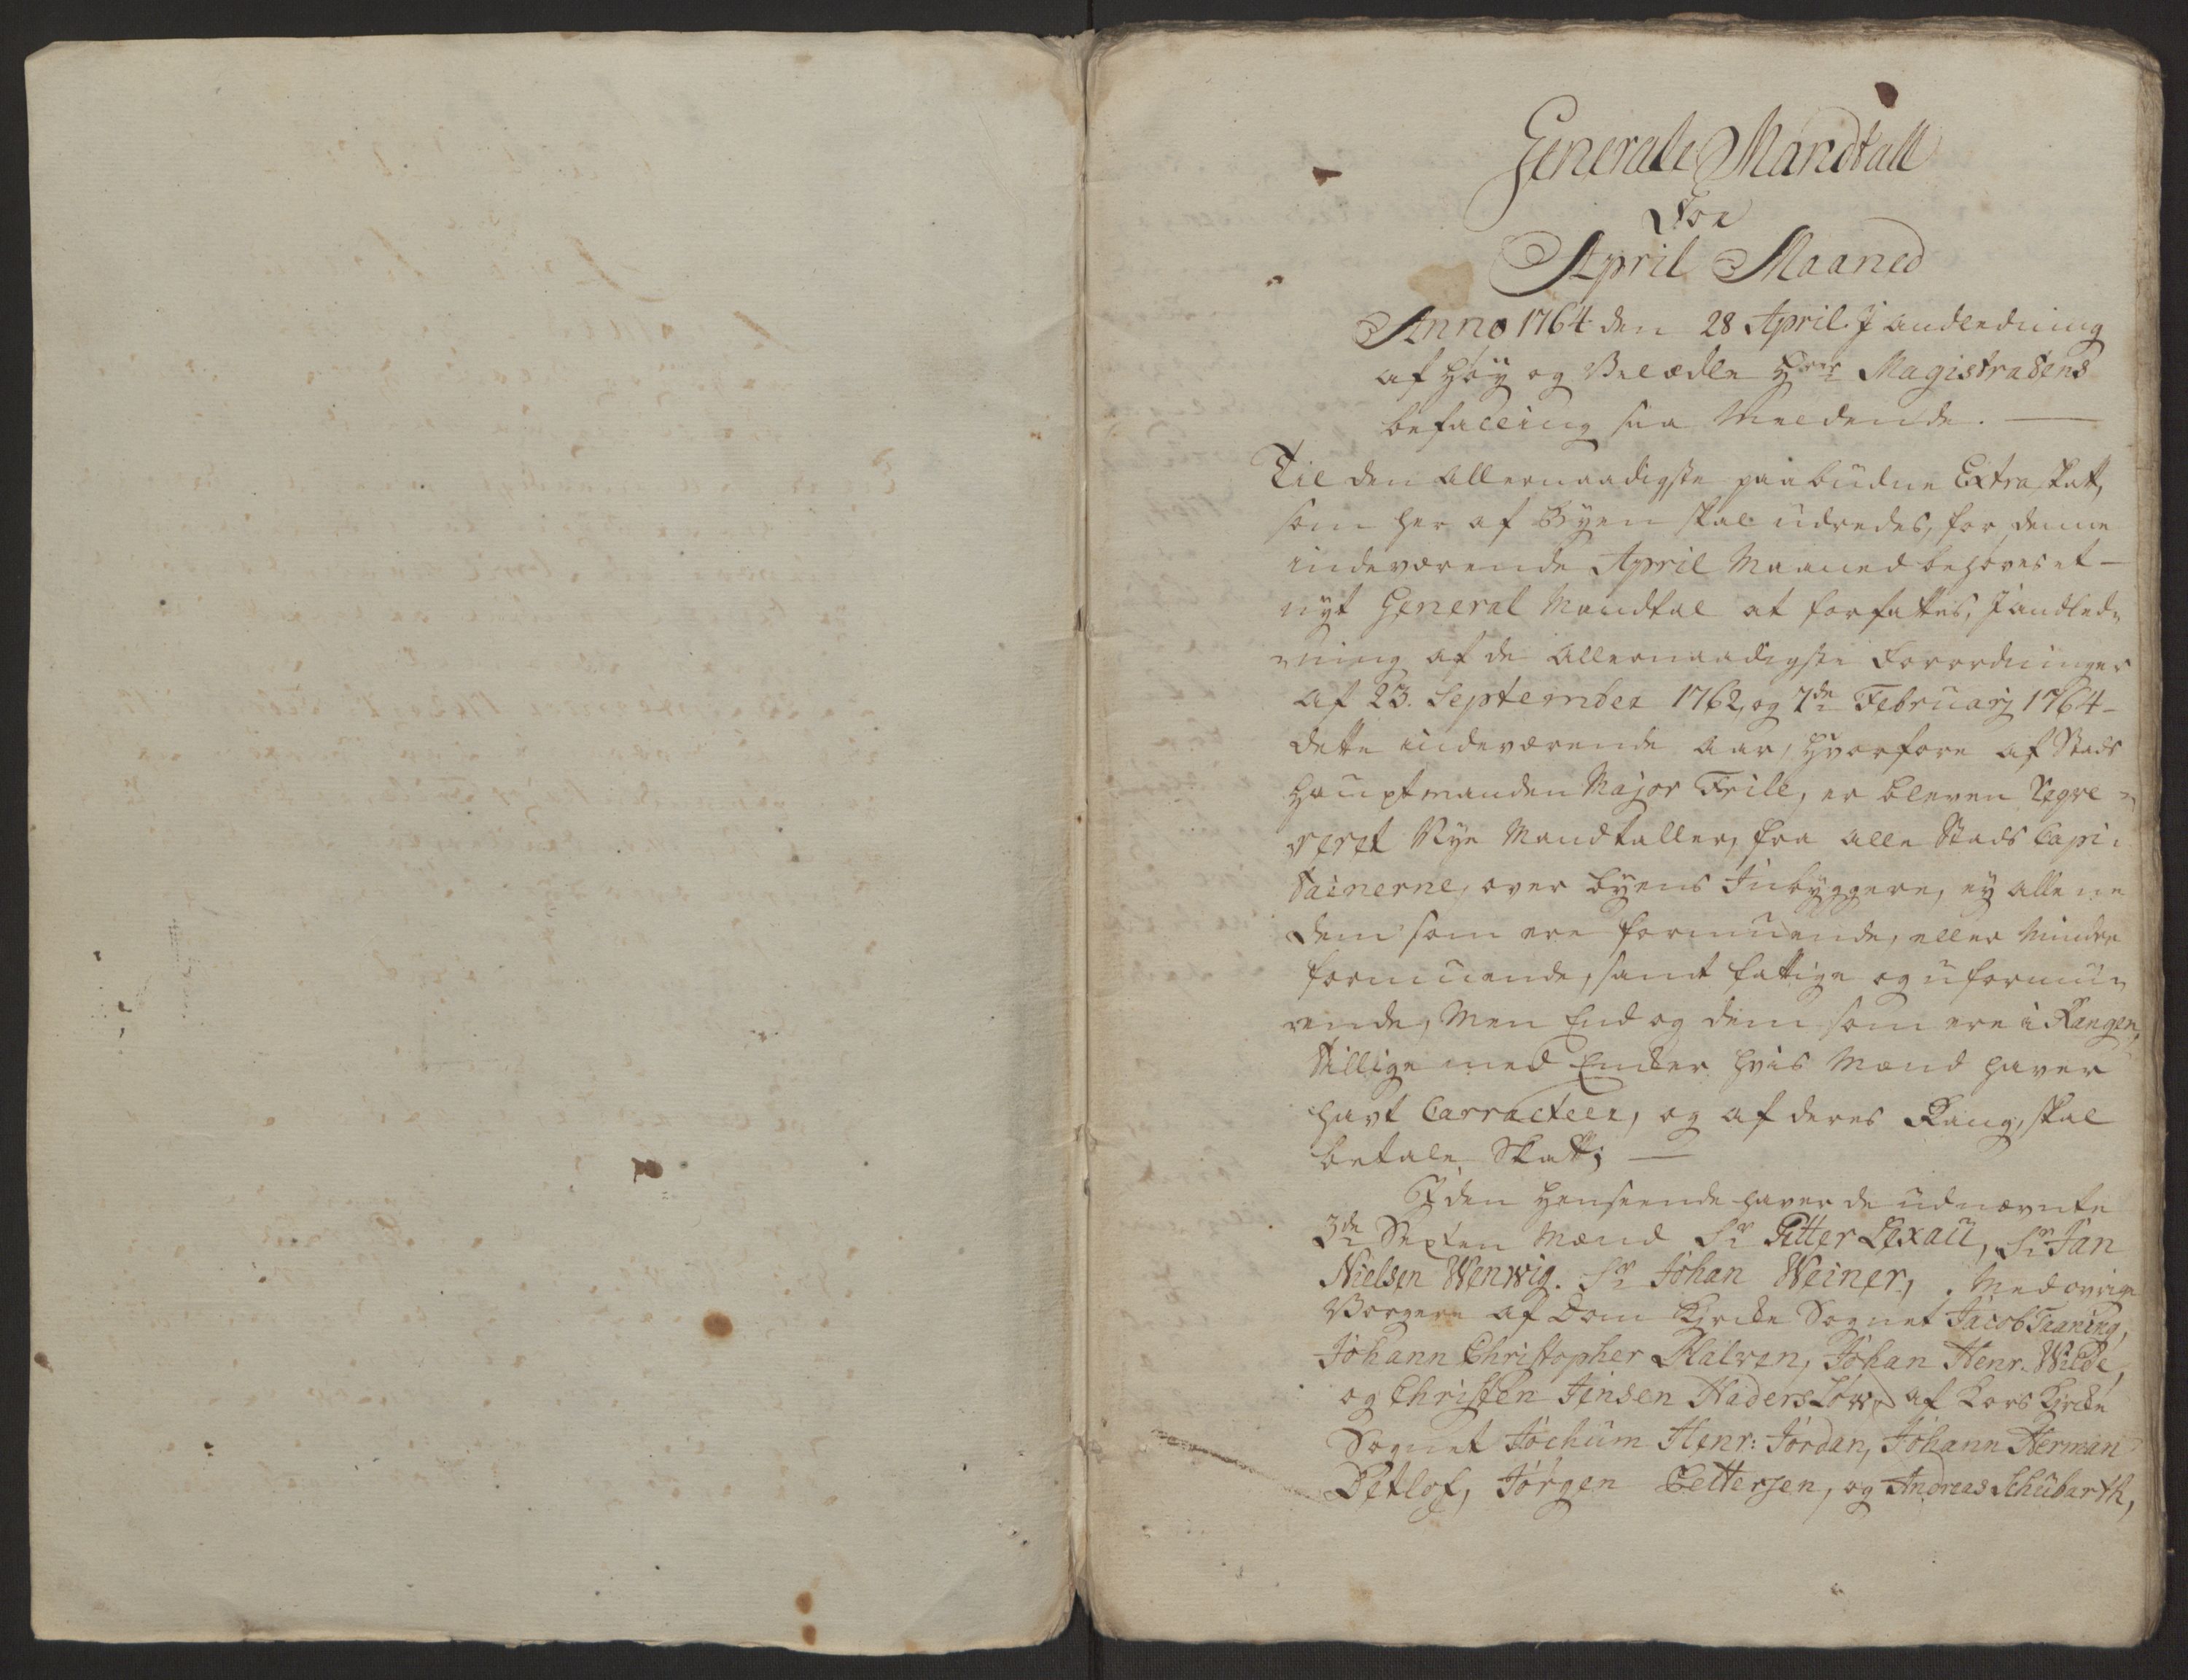 Generale Mandtall
For
April Maaned
Anno 1764 den 28 April J andledning
af Høy og Velædle Herr Magistratens
befalling saa Meldende. —
Til den Allernaadigste paabudne Extra skatt,
som her af Byen skal udredes, for denne
indeværende April Maaned behøves et —
nyt General Mandtal at forfattes, J andled-
-ning af de Allernaadigste Forordninger
af 23. September 1762, og 7de Februarj 1764 —
dette indeværende Aar, Hvorfore af Stads
Hauptmanden Major Frile, er bleven
Nye Mandtaller, fra alle Stads Capi-
tainerne, over byens Inbyggere, ey allene
dem som ere formuende, eller Mindre
formuende, samt fattige og uformu-
-ende, Men End og dem som ere i Rangen,
tillige med Enker hvis Mænd haver
havt Carracteer, og af deres Rang, skal
betale Skatt; —
J den Henseende haver de udnævnte
3de Mænd Sr Petter Lexau, Sr Jan
Nielsen Wenwig. Sr Johan Weiner, Med øvrige
Borgere af Dom Kircke Sognet Jacob Taaning,
Johann Christopher Halven, Johan Henr. Wilde,
og Christen Jensen Haderslow af Kors Kircke
Sognet Jochum Henr: Jordan, Johann Herman
Detlof, Jørgen Pettersen, og Andreas Schubarth,